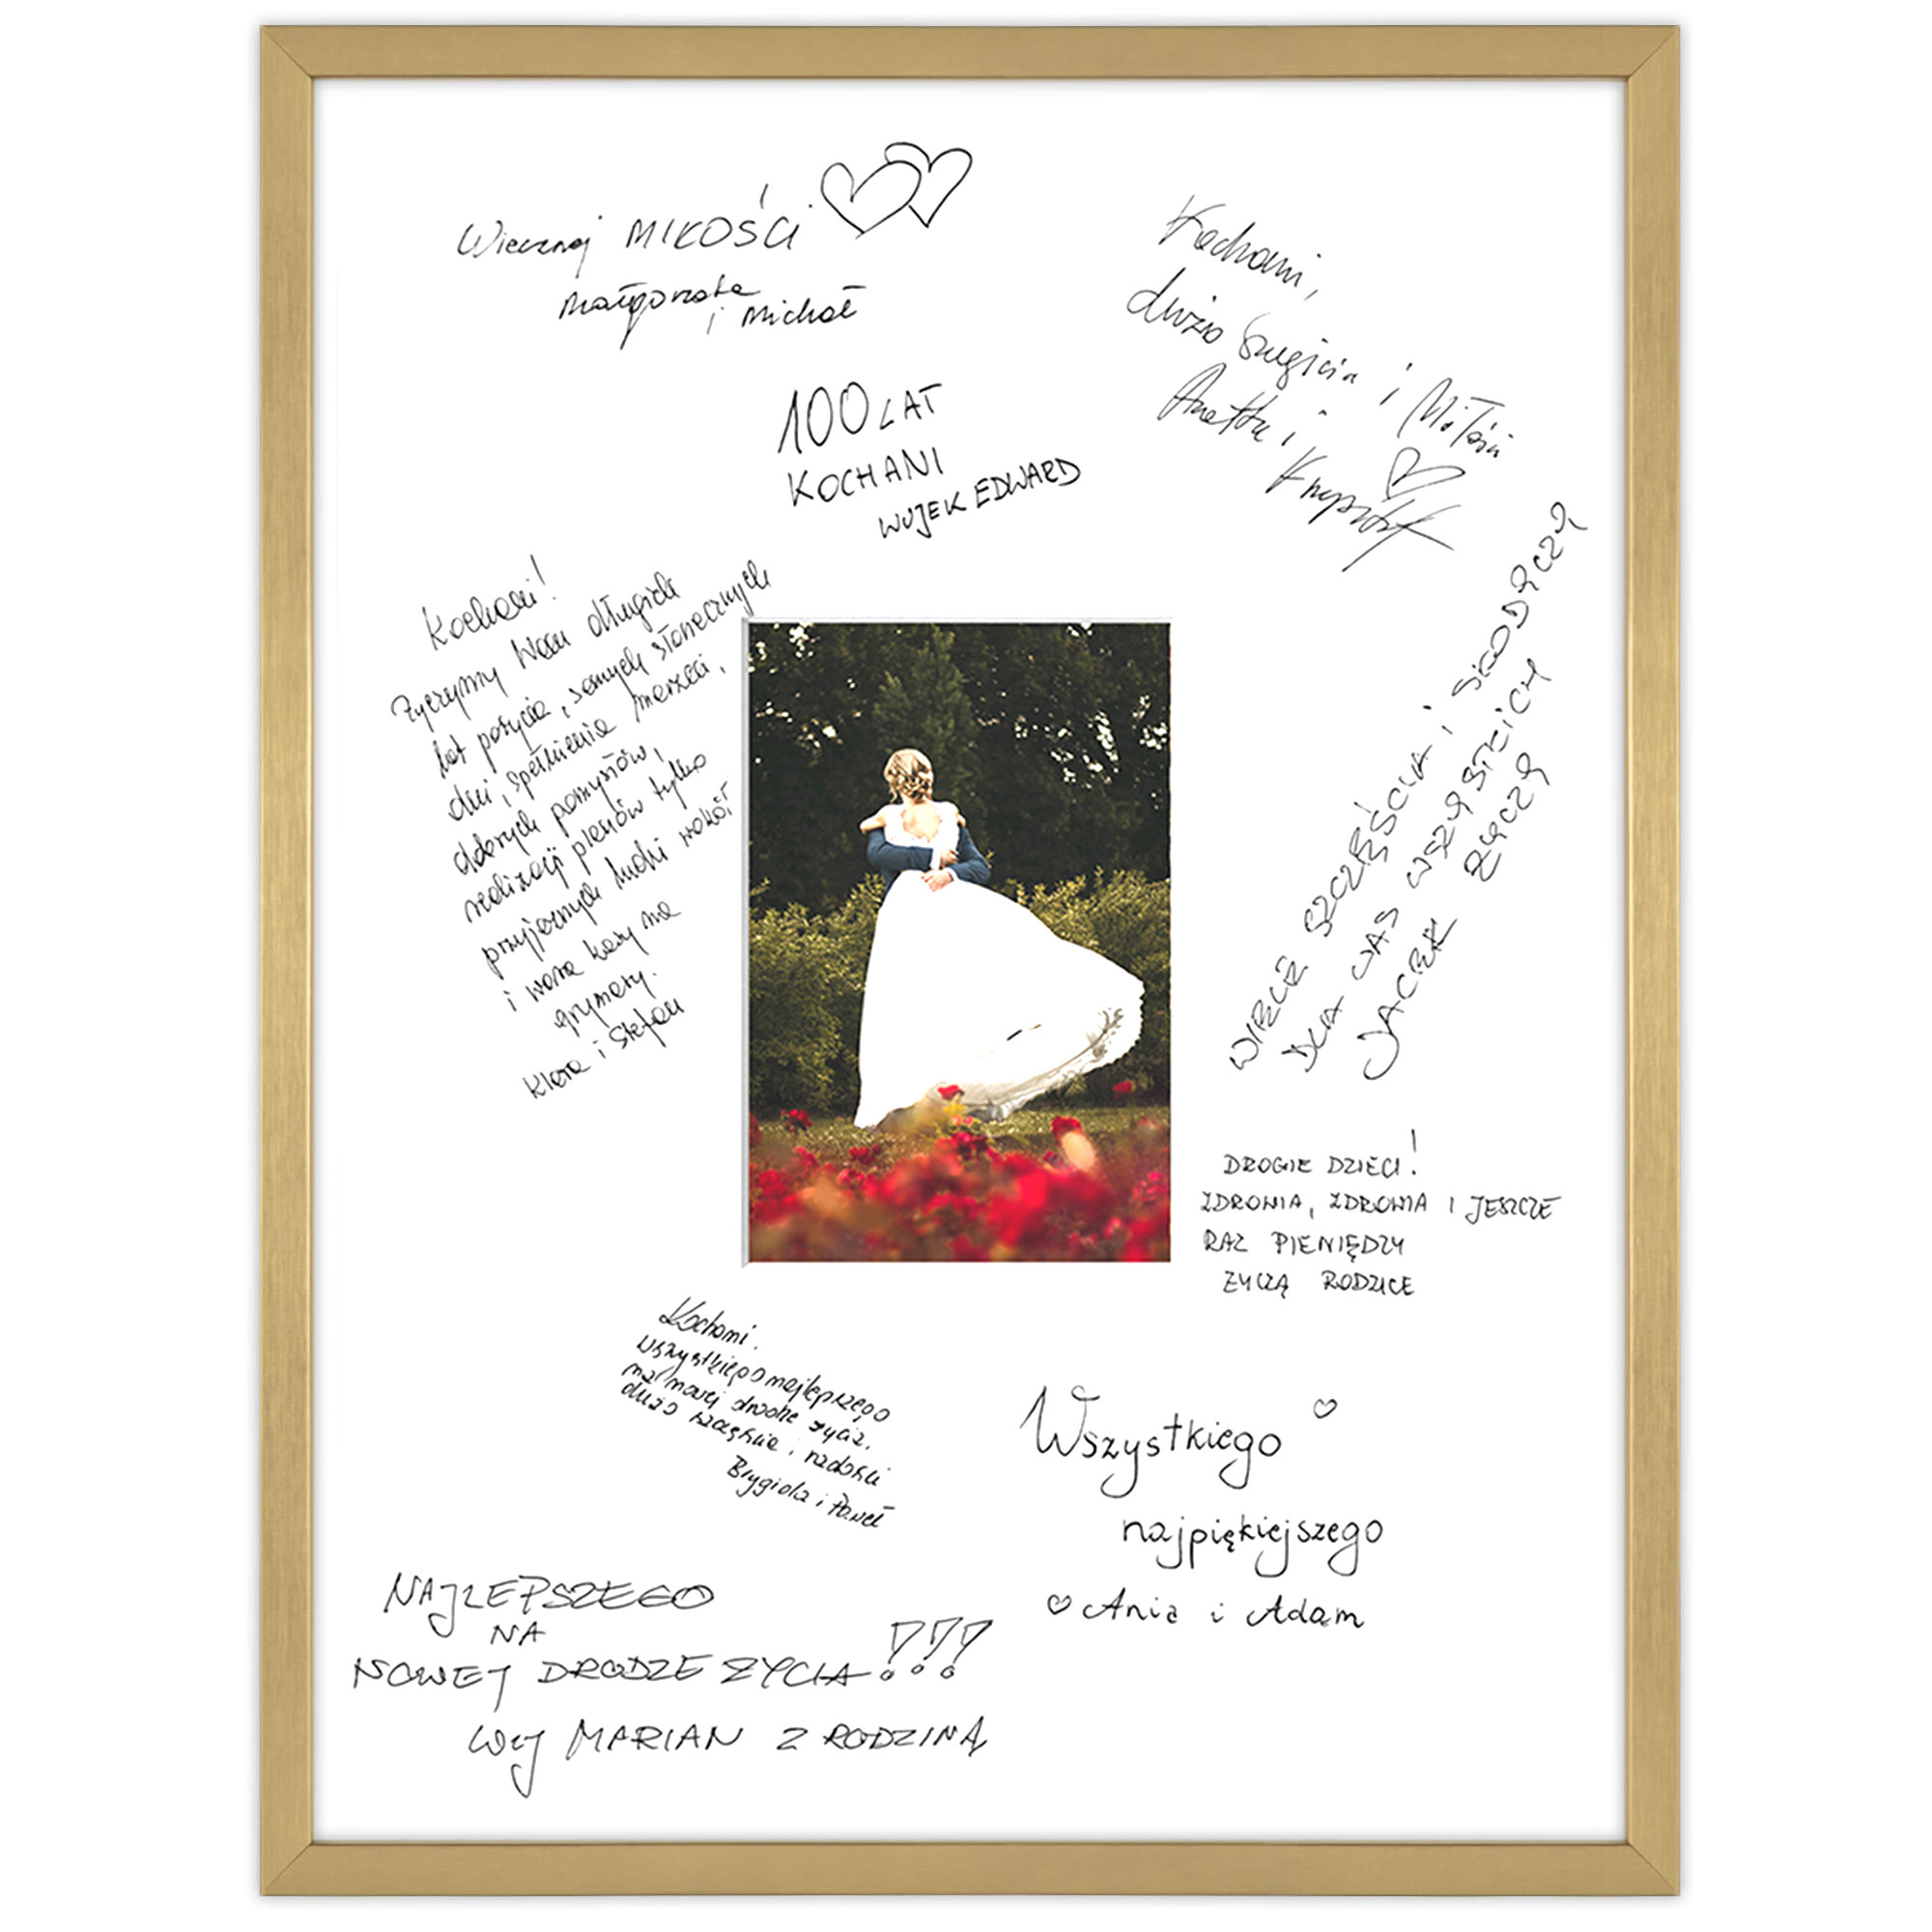 Wiecznej MIŁOŚCI
Małgorzata
i Michał
Kochani,
dużo Szczęścia i Miłości
Anetta i
Krzysztof
100 LAT
KOCHANI
WUJEK EDWARD
Kochani!
Życzymy Wam długich
lat pożycia, samych słonecznych
dni, spełnienia marzeń,
dobrych pomysłów,
realizacji planów tylko
przyjaznych ludzi wokół
i
grymasy.
Klara i Stefan
WIELE SZCZĘŚCIA I SŁODYCZY
DLA WAS WSZYSTKICH
JACEK ŻYCZY
DROGIE DZIECI!
ZDROWIA, ZDROWIA I JESZCZE
RAZ PIENIĘDZY
ŻYCZĄ RODZICE
Kochani.
wszystkiego najlepszego
na nowej drodze życia,
dużo szczęścia i radości
Brygida i Paweł
Wszystkiego
najpiękiejszego
Ania i Adam
NAJLEPSZEGO
NA
NOWEJ DRODZE ŻYCIA!!!
WUJ MARIAN Z RODZINĄ